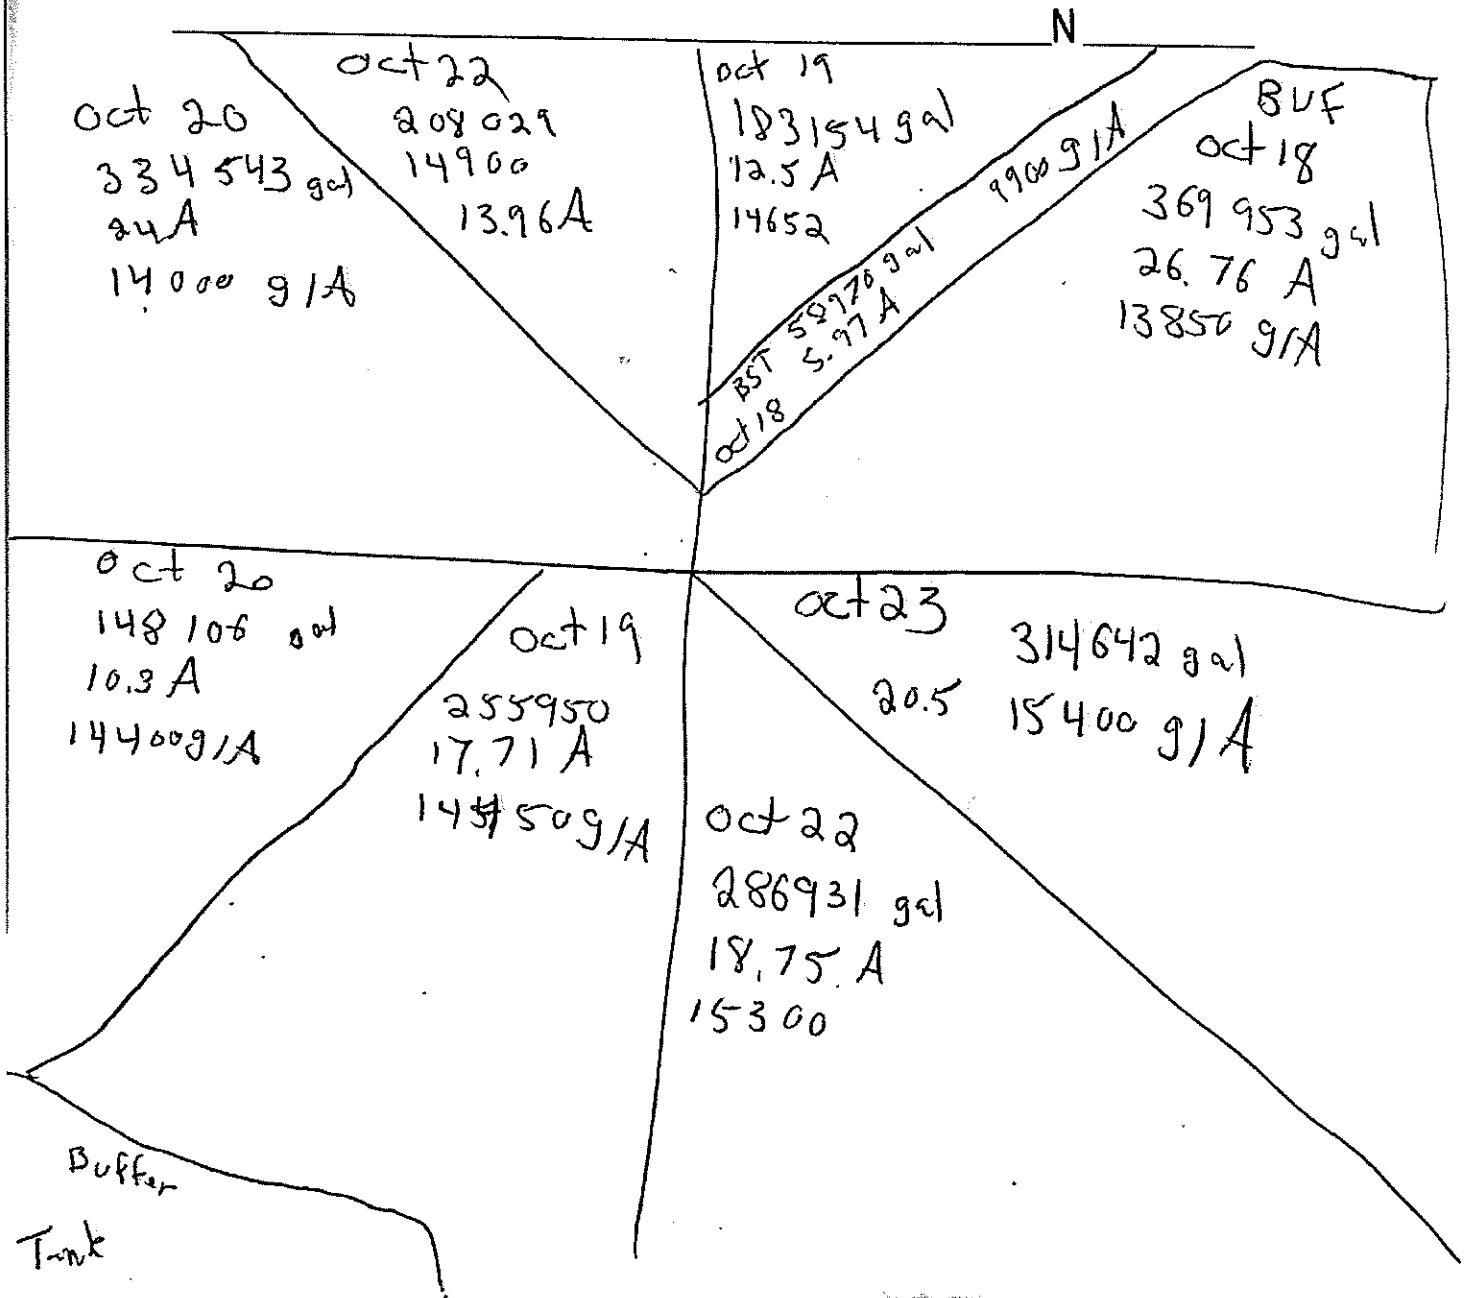 N
Oct 20
334543 gal
24A
14000 g/A
Oct 22
208029
14900
13.96A
Oct 19
183154 gal
12.5 A
14652
9900 g/A
BST 58970 gal
Oct 18 5.97 A
BUF
Oct 18
369953 gal
26.76 A
13850 g/A
Oct 20
148106 gal
10.3 A
14400 g/A
Oct 19
255950
17.71 A
14450 g/A
Oct 23
314642 gal
20.5 15400 g/A
Oct 22
286931 gal
18.75 A
15300
Buffer